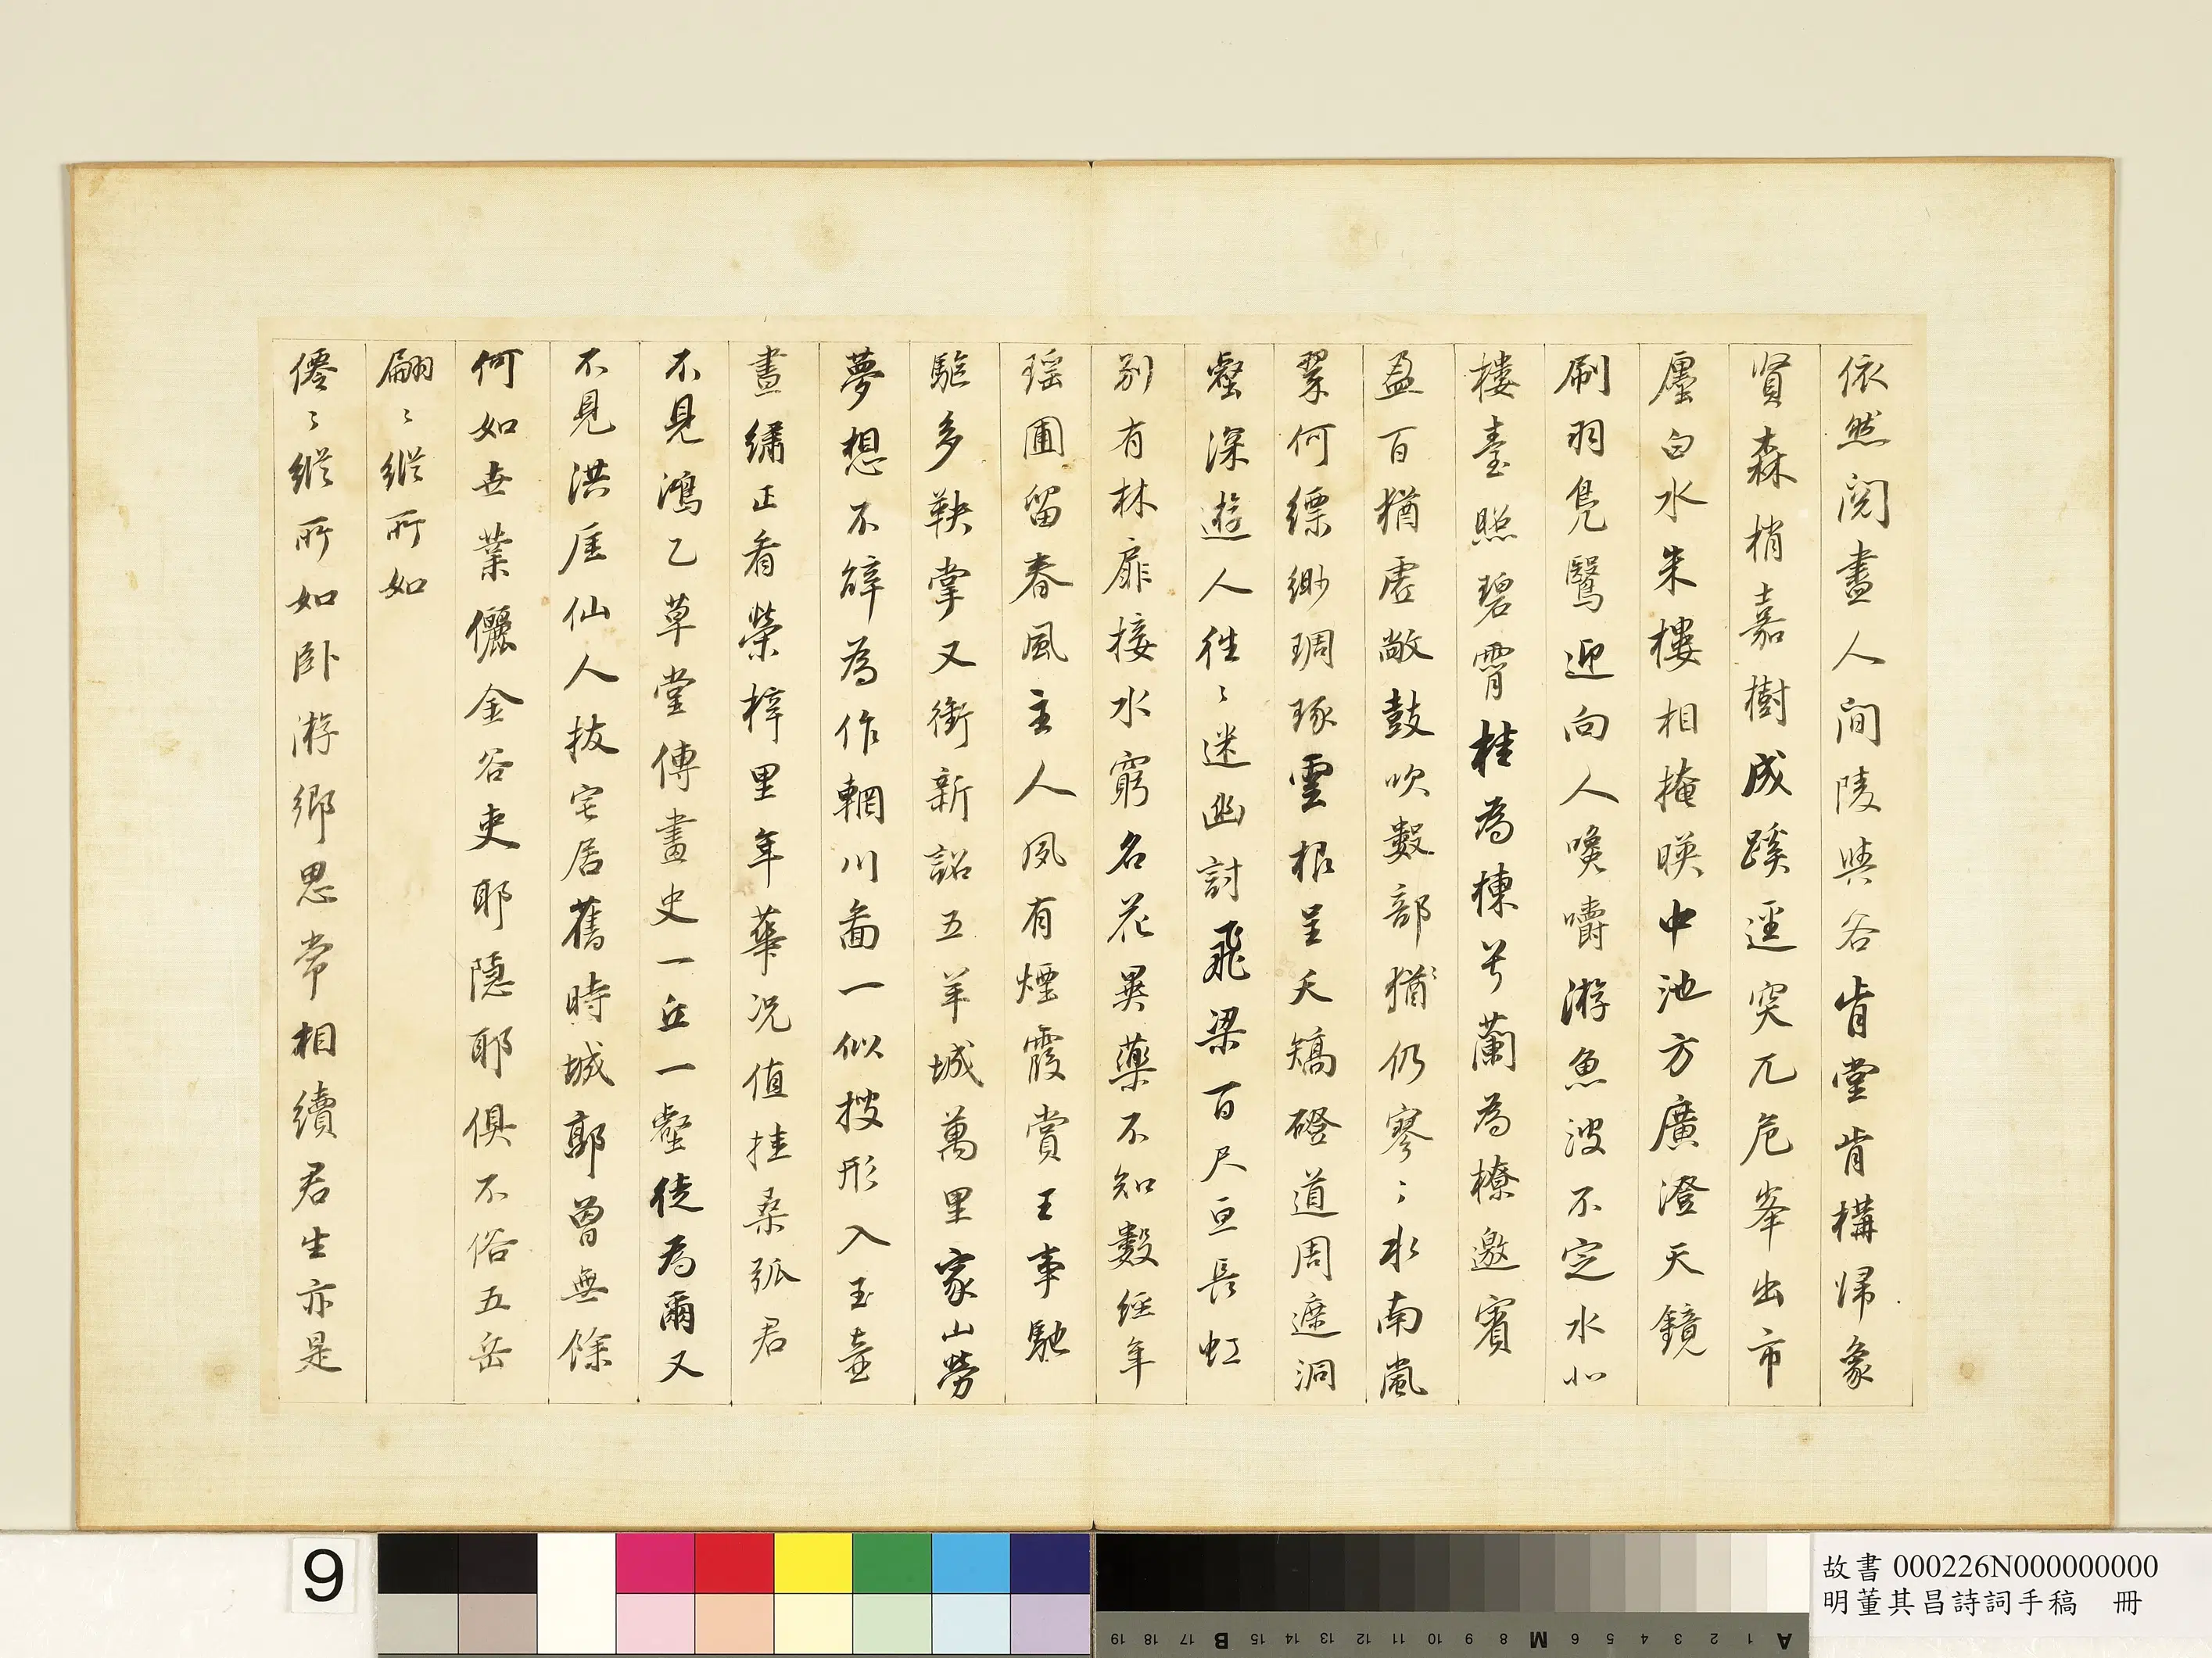 依然閱盡人間陵與谷肯堂肯構歸象
賢森梢嘉樹成蹊逕突兀危峯出市
廛白水朱樓相掩暎中池方廣澄天鏡
刷羽鳧鷖迎向人喚嚼游魚波不定水北
樓臺照碧霄桂為棟兮蘭為橑邀賓
盈百猶虛敞鼓吹數部猶仍寥〻水南嵐
翠何縹緲琱琢雲根呈夭矯磴道周遮洞
壑深遊人往〻迷幽討飛梁百尺亘長虹
別有林扉接水窮名花異藥不知數經年
瑶圃留春風主人夙有煙霞賞王事馳
驅多鞅掌又銜新詔五羊城萬里家山勞
夢想不辭為作輞川圖一似搜形入玉壺
晝繡正看榮梓里年華況值挂桑弧君
不見鴻乙草堂傳畫史一丘一壑徒為爾又
不見洪厓仙人拔宅居舊時城郭曾無餘
何如世業儷金谷吏耶隱耶俱不俗五岳
翩〻縱所如
僊〻縱所如卧游鄉思常相續君生亦是
9
故書 000226N000000000
明董其昌詩詞手稿 冊
19 18 17 B 15 14 13 12 11 10 9 8 M 6 5 4 3 2 1 A